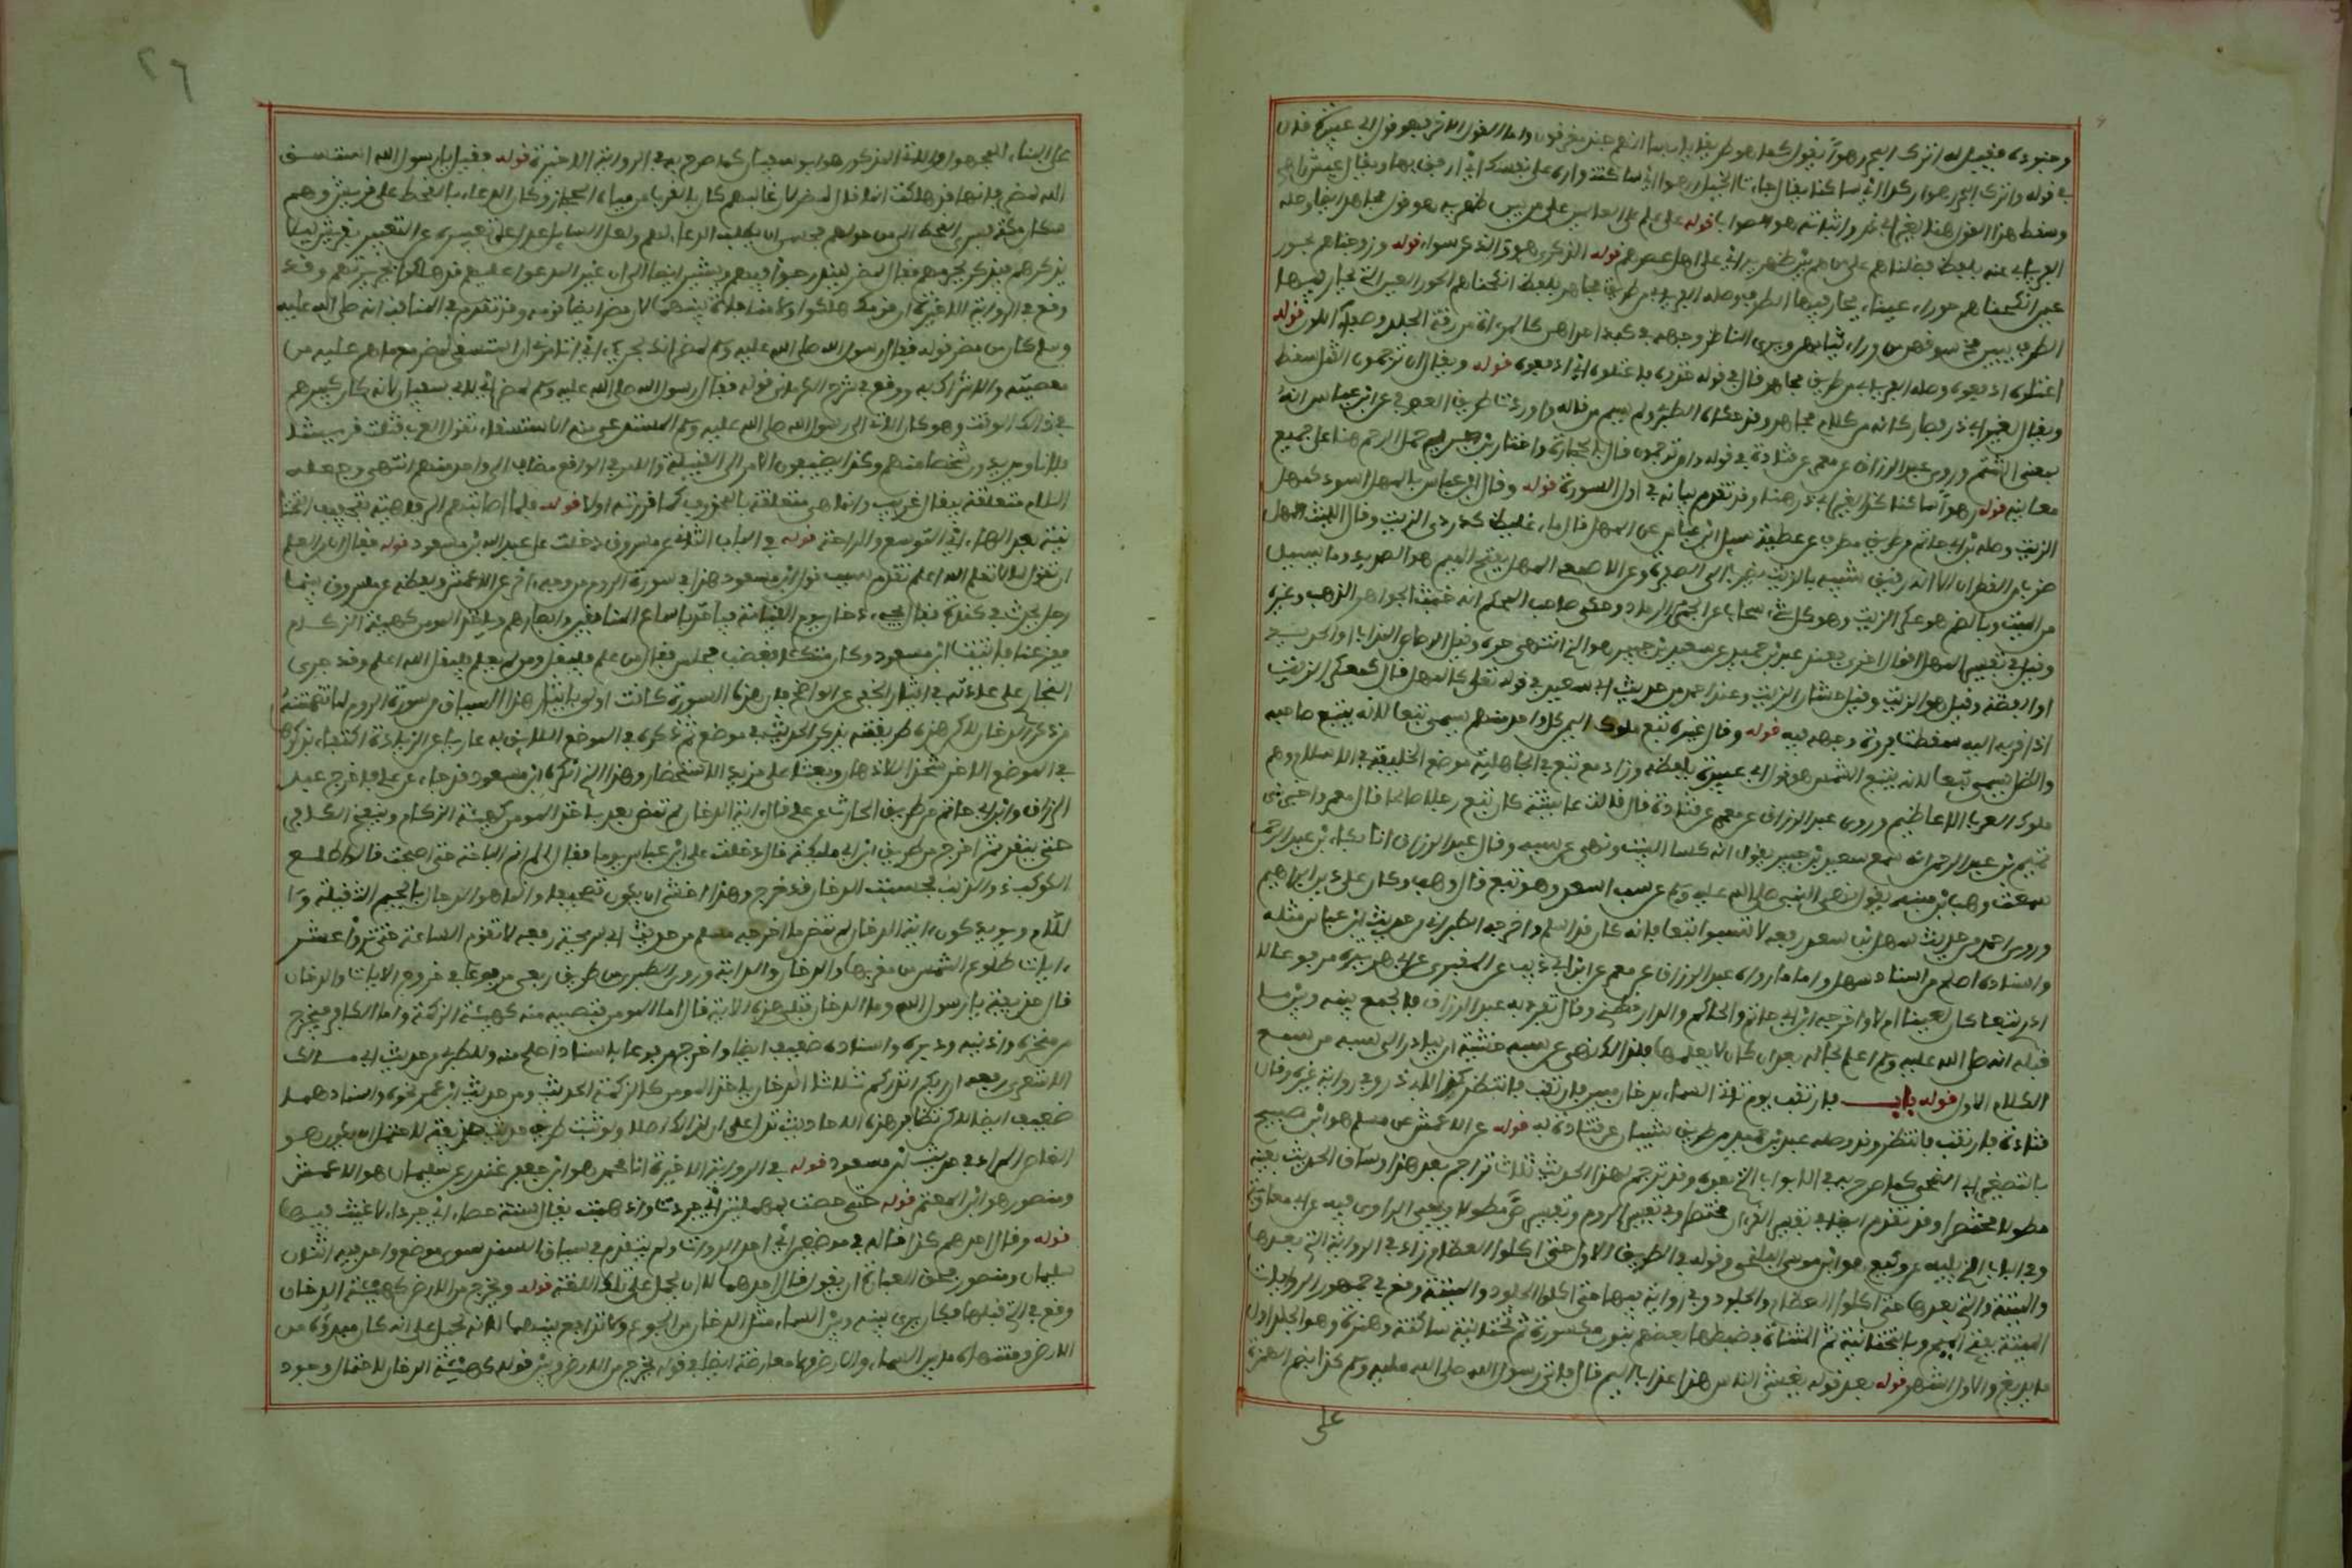 وجنوده فقيل له اترك البحر رهوا يقول كما هو طريقا يابسا انهم جند مغرقون واما القول الاخر فهو قول ابي عبيدة قال
في قوله واترك البحر رهوا اي ساكنا يقال جاءت الخيل رهوا اي ساكنة واره على نفسك اي ارفق بها ويقال عيش راه
وسقط هذا القول هنا لغير ابي ذر واثباته هو الصواب قوله على علم على العالمين على من بين ظهريه هو قول مجاهد ايضا وصله
الفريابي عنه بلفظ فضلناهم على من هم بين ظهريه اي على اهل عصرهم قوله وزوجناهم بحور
عين انكحناهم حورا عينا يحار فيها الطرف وصله الفريابي من طريق مجاهد بلفظ انكحناهم الحور العين التي يحار فيها
الطرف يبين مخ سوقهن من وراء ثيابهن ويرى الناظر وجهه في كبد احداهن كالمراة من رقة الجلد وصفاء اللون قوله
اعتلوه ادفعوه وصله الفريابي من طريق مجاهد قال في قوله خذوه فاعتلوه اي ادفعوه قوله ويقال ان ترجمون القتل سقط
ويقال لغير ابي ذر فصار كانه من كلام مجاهد وقد حكاه الطبري ولم يسم من قاله واورد من طريق العوفي عن ابن عباس انه
بمعنى الشتم وروى عبد الرزاق عن معمر عن قتادة في قوله ان ترجمون قال بالحجارة واختار ابن جرير حمل الرجم هنا على جميع
معانيه قوله رهوا ساكنا كذا لغير ابي ذر هنا وقد تقدم بيانه في اول السورة قوله وقال ابن عباس كالمهل اسود كمهل
الزيت وصله ابن ابي حاتم من طريق مطرف عن عطية سئل ابن عباس عن المهل قال ماء غليظ كدردي الزيت وقال الليث المهل
ضرب من القطران الا انه رقيق شبيه بالزيت يضرب الى الصفرة وعن الاصمعي المهل بفتح الميم هو الصديد وما يسيل
من الميت وبالضم هو عكر الزيت وهو كل شيء يتحات عن الجمر من الرماد وحكى صاحب المحكم انه خبث الجواهر الذهب وغيره
وقيل في تفسير المهل اقوال اخرى فعند عبد بن حميد عن سعيد بن جبير هو الذي انتهى حره وقيل الرصاص المذاب او الحديد
او الفضة وقيل هو الزيت وقيل خشار الزيت وعند احمد من حديث ابي سعيد في قوله تعلى كالمهل قال كعكر الزيت
اذا قربه اليه سقطت فروة وجهه فيه قوله وقال غيره تبع ملوك اليمن كل واحد منهم يسمى تبعا لانه يتبع صاحبه
والظل يسمى تبعا لانه يتبع الشمس هو قول ابي عبيدة بلفظه وزاد موضع تبع في الجاهلية موضع الخليفة في الاسلام وهم
ملوك العرب الاعاظم وروى عبد الرزاق عن معمر عن قتادة قال قالت عايشة كان تبع رجلا صالحا قال معمر واخبرني
تميم بن عبد الرحمن انه سمع سعيد بن جبير يقول انه كسا البيت ونهى عن سبه وقال عبد الرزاق انا بكار بن عبد الرحمن
سمعت وهب بن منبه يقول نهى النبي صلى الله عليه وسلم عن سب اسعد وهو تبع قال وهب وكان على دين ابراهيم
وروى احمد من حديث سهل بن سعد رفعه لا تسبوا تبعا فانه كان قد اسلم واخرجه الطبراني من حديث ابن عباس مثله
واسناده اصلح من اسناد سهل واما ما رواه عبد الرزاق عن معمر عن ابن ابي ذيب عن المقبري عن ابي هريرة مرفوعا لا
ادري تبعا كان لعينا ام لا واخرجه ابن ابي حاتم والحاكم والدارقطني وقال تفرد به عبد الرزاق فالجمع بينه وبين ما
قبله انه صلى الله عليه وسلم اعلم بحاله بعد ان كان لا يعلمها فلذلك نهى عن سبه خشية ان يبادر الى سبه من سمع
الكلام الاول قوله باب فارتقب يوم تاتي السماء بدخان مبين فارتقب فانتظر كذا لابي ذر وفي رواية غيره وقال
قتادة فارتقب فانتظر وقد وصله عبد بن حميد من طريق شيبان عن قتادة به قوله عن الاعمش عن مسلم هو ابن صبيح
بالتصغير ابي الضحى كما صرح به في الابواب التي بعده وقد ترجم لهذا الحديث ثلاث تراجم بعد هذا وساق الحديث بعينه
مطولا ومختصرا وقد تقدم ايضا في تفسير الفرقان مختصرا وفي تفسير الروم وتفسير ص مطولا ويحيى الراوي فيه عن ابي معاوية
وفي الباب الذي يليه عن وكيع هو ابن موسى البلخي وقوله في الطريق الاول حتى اكلوا العظام زاد في الرواية التي بعدها
والميتة والتي بعدها حتى اكلوا العظام والجلود وفي رواية فيها حتى اكلوا الجلود والميتة وقع في جمهور الروايات
الميتة بفتح الميم وبالتحتانية ثم المثناة وضبطها بعضهم بنون مكسورة ثم تحتانية ساكنة وهمزة وهو الجلد اول
ما يدبغ والاول اشهر قوله بعد قوله يغشى الناس هذا عذاب اليم قال فاتي رسول الله صلى الله عليه وسلم كذا بضم الهمزة
على
٢٦
على البناء للمجهول والاتي المذكور هو ابو سفيان كما صرح به في الرواية الاخيرة قوله فقيل يا رسول الله استسق
الله لمضر فانها قد هلكت انما قال لمضر لان غالبهم كان بالقرب من مياه الحجاز وكان الدعاء بالقحط على قريش وهم
سكان مكة فسرى القحط الى من حولهم فحسن ان يطلب الدعاء لهم ولعل السايل عدل عن تعبيره عن التعبير بقريش ليلا
يذكرهم فيذكر بجرمهم فقال لمضر ليندرجوا فيهم ويشير ايضا الى ان غير المدعو عليهم قد هلكوا بجريرتهم وقد
وقع في الرواية الاخيرة ان قومك هلكوا ولا منافاة بينهما لان مضر ايضا قومه وقد تقدم في المناقب انه صلى الله عليه
وسلم كان من مضر قوله فقال رسول الله صلى الله عليه وسلم لمضر انك لجريء اي اتامرني ان استسقي لمضر مع ما هم عليه من
معصية والاشراك به ووقع في شرح الكرماني قوله فقال رسول الله صلى الله عليه وسلم لمضر اي لابي سفيان لانه كان كبيرهم
في ذلك الوقت وهو كان الاتي الى رسول الله صلى الله عليه وسلم المستدعي منه الاستسقاء تقول العرب قتلت قريش
فلانا ويريدون شخصا منهم وكذا يضيفون الامر الى القبيلة والامر في الواقع مضاف الى واحد منهم انتهى وجعله
اللام متعلقة بقال غريب وانما هي متعلقة بالمحذوف كما قررته اولا قوله فلما اصابتهم الرفاهية بتخفيف التحتا
نية بعد الهاء اي التوسع والراحة قوله في الباب الثاني عن مسروق دخلت على عبد الله بن مسعود قوله فقال ان من العلم
ان تقول لما لا تعلم الله اعلم تقدم سبب قول ابن مسعود هذا في سورة الروم من وجه اخر عن الاعمش ولفظه عن مسروق بينما
رجل يحدث في كندة فقال يجيء دخان يوم القيامة فياخذ باسماع المنافقين وابصارهم وياخذ المومن كهيئة الزكام
ففزعنا فاتيت ابن مسعود وكان متكئا فغضب فجلس فقال من علم فليقل ومن لم يعلم فليقل الله اعلم وقد جرى
البخاري على عادته في ايثار الخفي على الواضح فان هذه السورة كانت اولى بايراد هذا السياق من سورة الروم لما تضمنته
من ذكر الدخان لكن هذه طريقته يذكر الحديث في موضع ثم يذكره في الموضع اللايق به عاريا عن الزيادة اكتفاء بذكرها
في الموضع الاخر شحذا للاذهان وبعثا على مزيد الاستحضار وهذا الذي انكره ابن مسعود قد جاء عن علي فاخرج عبد
الرزاق وابن ابي حاتم من طريق الحارث عن علي قال اية الدخان لم تمض بعد ياخذ المومن كهيئة الزكام وينفخ الكافر
حتى ينفد ثم اخرج من طريق ابن ابي مليكة قال دخلت على ابن عباس يوما فقال لي لم انم البارحة حتى اصبحت قالوا طلع
الكوكب ذو الذنب فخشيت الدخان قد خرج وهذا اخشى ان يكون تصحيفا وانما هو الدجال بالجيم الثقيلة و
اللام ويويد كون اية الدخان لم تمض ما اخرجه مسلم من حديث ابي سريحة رفعه لا تقوم الساعة حتى تروا عشر
ايات طلوع الشمس من مغربها والدخان والدابة وروى الطبري من طريق ربعي مرفوعا في خروج الايات والدخان
قال حذيفة يا رسول الله وما الدخان فتلى هذه الاية قال اما المومن فتصيبه منه كهيئة الزكمة واما الكافر فيخرج
من منخريه واذنيه ودبره واسناده ضعيف ايضا واخرج مرفوعا باسناد اصلح منه وللطبري من حديث ابي مالك
الاشعري رفعه ان ربكم انذركم ثلاثا الدخان ياخذ المومن كالزكمة الحديث ومن حديث ابن عمر نحوه واسنادهما
ضعيف ايضا لكن تظافر هذه الاحاديث تدل على ان لذلك اصلا ولو ثبت طريق حديث حذيفة لاحتمل ان يكون هو
القاص المراد في حديث ابن مسعود قوله في الرواية الاخيرة انا محمد هو ابن جعفر غندر عن سليمان هو الاعمش
ومنصور هو ابن المعتمر قوله حتى حصت بمهملتين اي جردت واذهبت يقال سنة حصاء اي جرداء لا غيث فيها
قوله وقال احدهم كذا قاله في موضعين اي احد الرواة ولم يتقدم في سياق السند سوى موضع واحد فيه اثنان
سليمان ومنصور فحق العبارة ان يقول قال احدهما لكن تحمل على تلك اللغة قوله وتخرج من الارض كهيئة الدخان
وقع في التي قبلها فكان يرى بينه وبين السماء مثل الدخان من الجوع ولا تدافع بينهما لانه يحمل على انه كان مبدؤه من
الارض ومنتهاه ما بين السماء والارض ولا معارضة ايضا في قوله يخرج من الارض وبين قوله كهيئة الدخان لاحتمال وجود